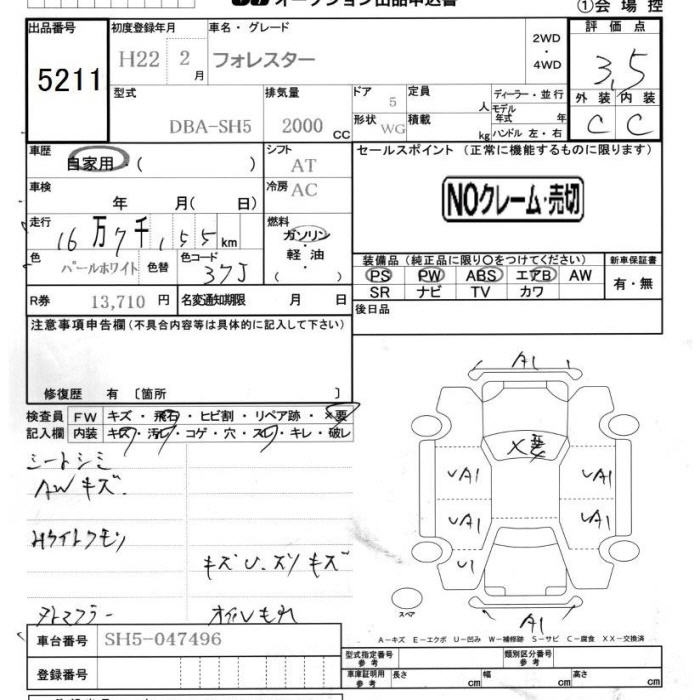 オークション出品申込書
①会場控
出品番号 5211
初度登録年月 H22 2月
車名・グレード フォレスター
2WD・4WD
評価点 3.5
外装 C 内装 C
型式 DBA-SH5
排気量 2000 cc
ドア 5
形状 WG
定員 人
積載 kg
ディーラー・並行
モデル年式 年
ハンドル 左・右
車歴 自家用・( )
シフト AT
セールスポイント (正常に機能するものに限ります)
車検 年 月( 日)
冷房 AC
NOクレーム・売切
走行 16万7千155km
燃料 ガソリン・軽油・( )
色 パールホワイト 色替 色コード 37J
装備品 (純正品に限り○をつけてください)
PS PW ABS エアB AW
SR ナビ TV カワ
新車保証書 有・無
R券 13,710 円
名変通知期限 月 日
後日品
注意事項申告欄 (不具合内容等は具体的に記入して下さい)
修復歴 有 〔箇所 〕
検査員記入欄
FW キズ・飛石・ヒビ割・リペア跡・×要
内装 キズ・汚レ・コゲ・穴・スレ・キレ・破レ
シートシミ
AWキズ.
キズU.スリキズ
オイルもれ
A1
X要
UA1 UA1
UA1 UA1
U1
A1
スペア
A−キズ E−エクボ U−凹み W−補修跡 S−サビ C−腐食 XX−交換済
車台番号 SH5-047496
登録番号
型式指定番号 参考
類別区分番号 参考
車庫証明用 参考 長さ cm 幅 cm 高さ cm